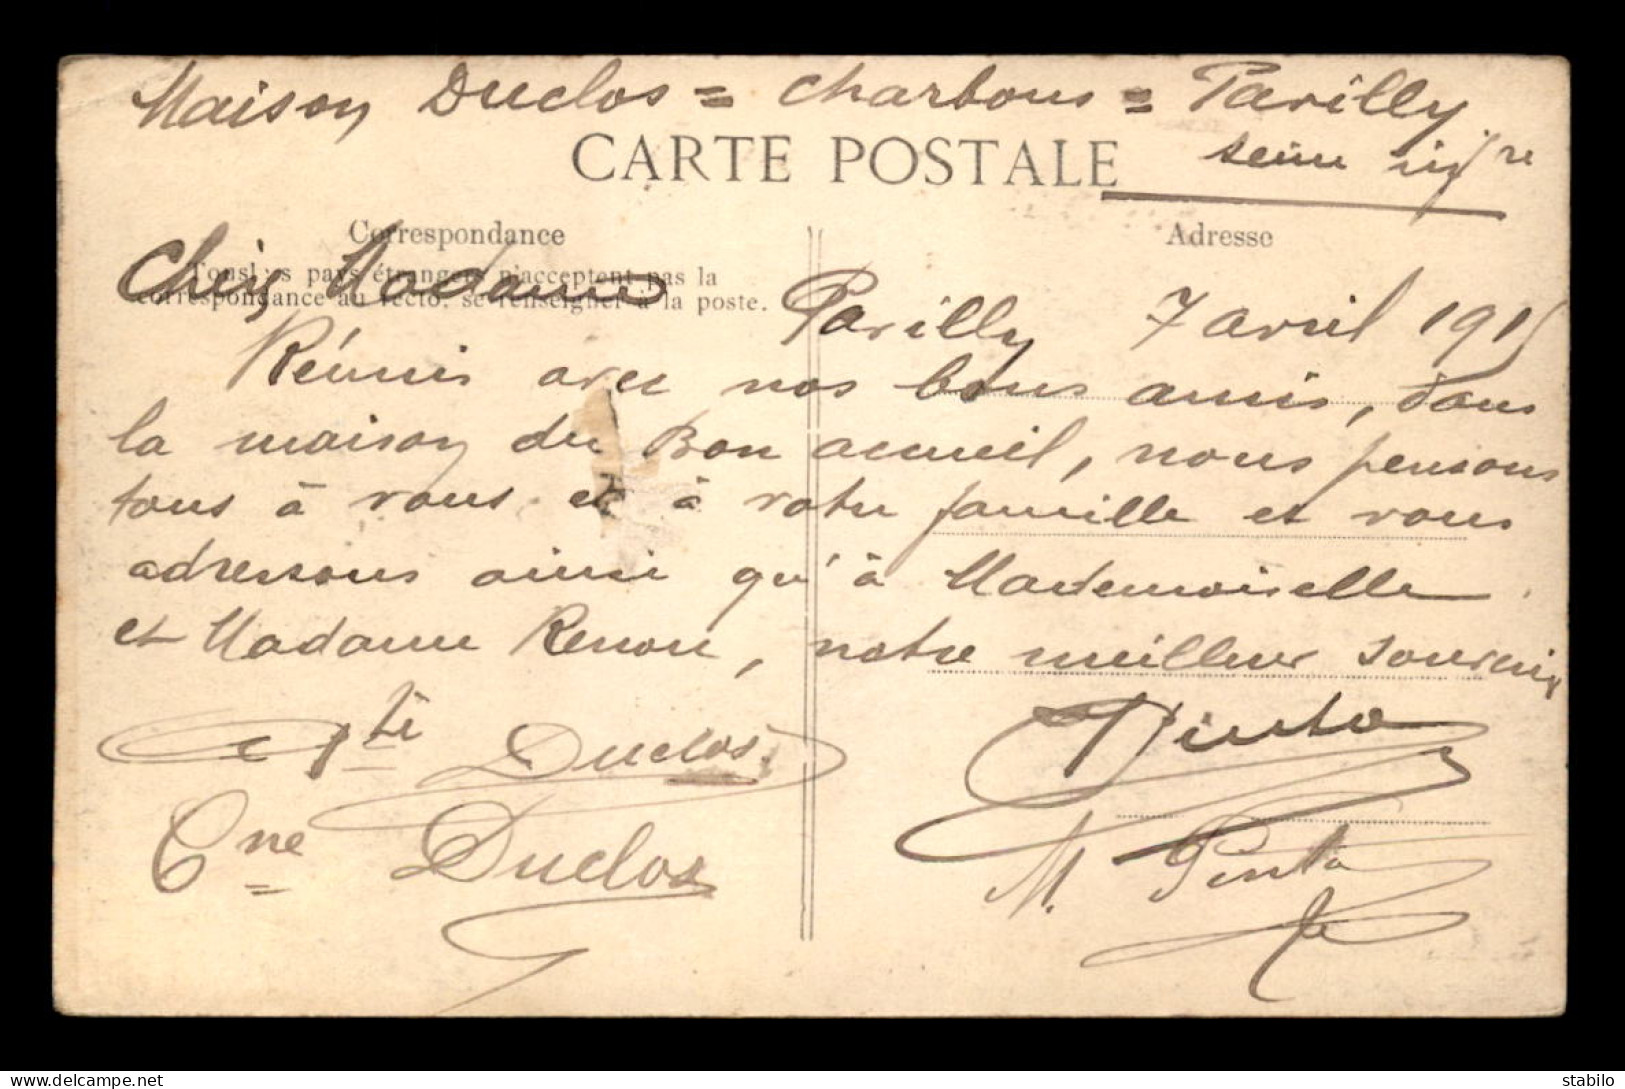 Maison Duclos = Charbons = Pavilly
Seine Infre
CARTE POSTALE
Correspondance
Adresse
Tous les pays étrangers n'acceptent pas la
correspondance au recto, se renseigner à la poste.
Chère Madame
Pavilly 7 avril 1915
Réunis avec nos bons amis, dans
la maison du Bon accueil, nous pensons
tous à vous et à votre famille et vous
adressons ainsi qu'à Mademoiselle
et Madame Renou, notre meilleur souvenir
Pinto
Duclos
M. Pinto
Cne Duclos
stabilo